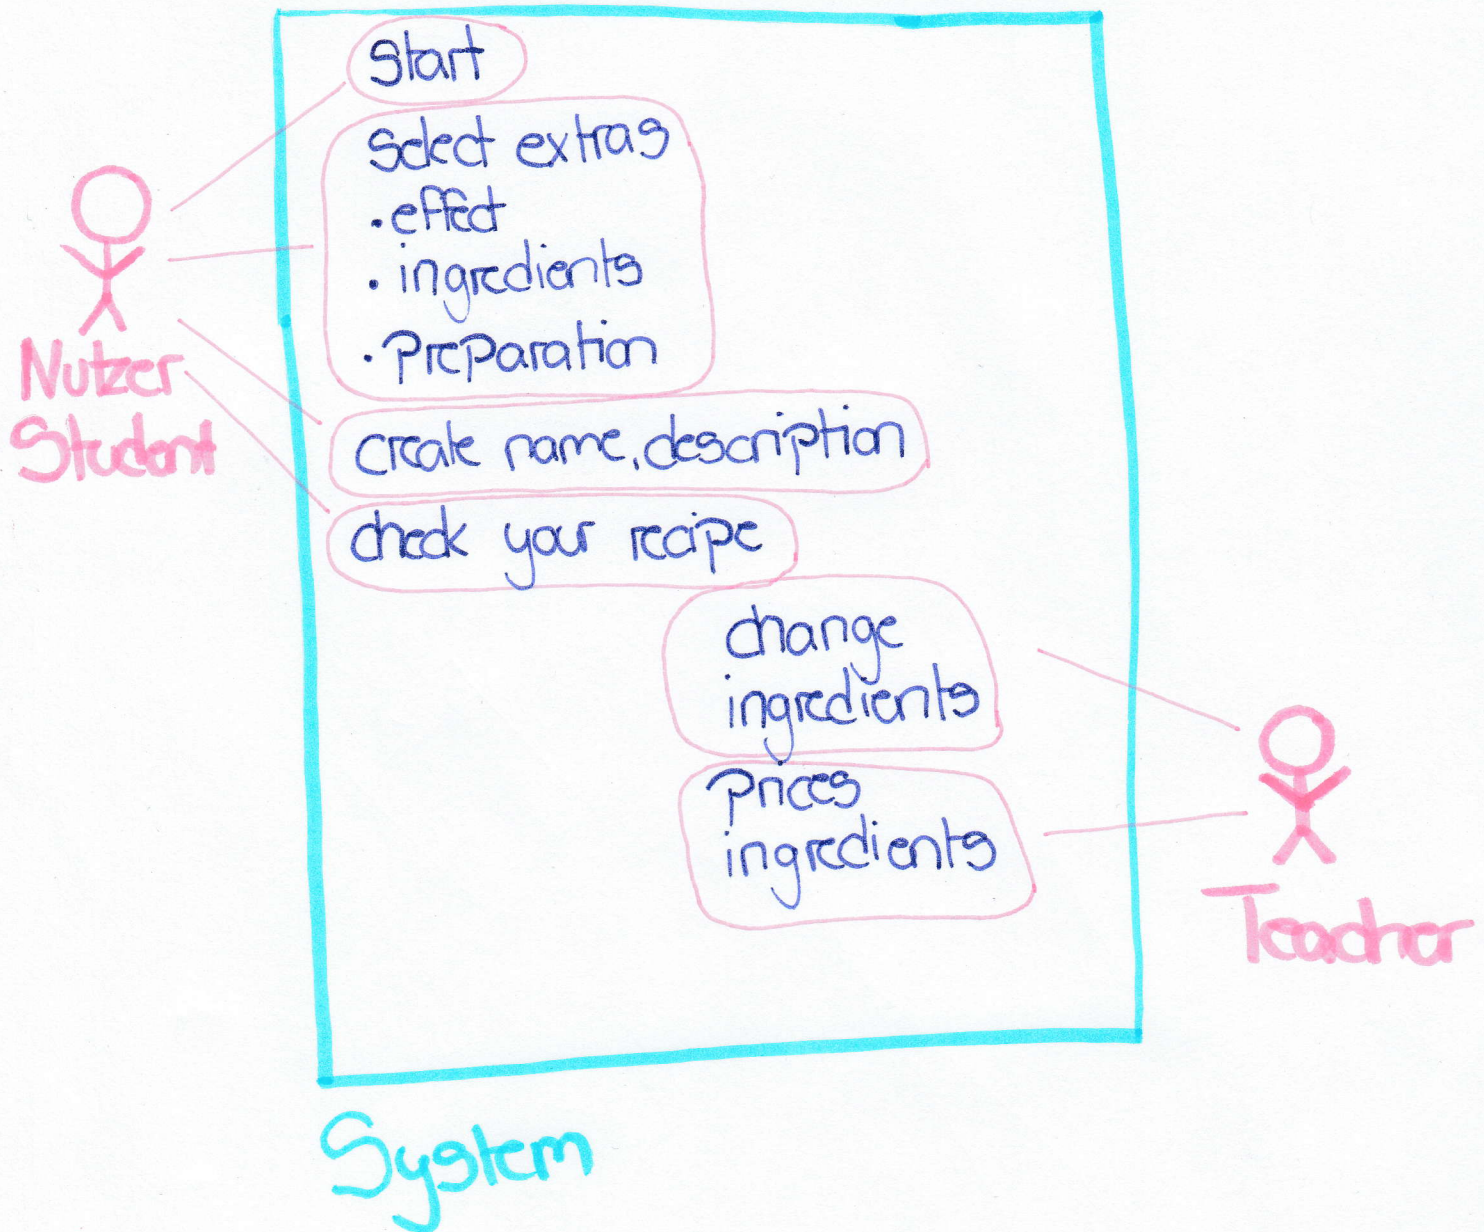 Start
Select extras
• effect
• ingredients
• Preparation
Nutzer
Student
create name, description
check your recipe
change
ingredients
Prices
ingredients
Teacher
System